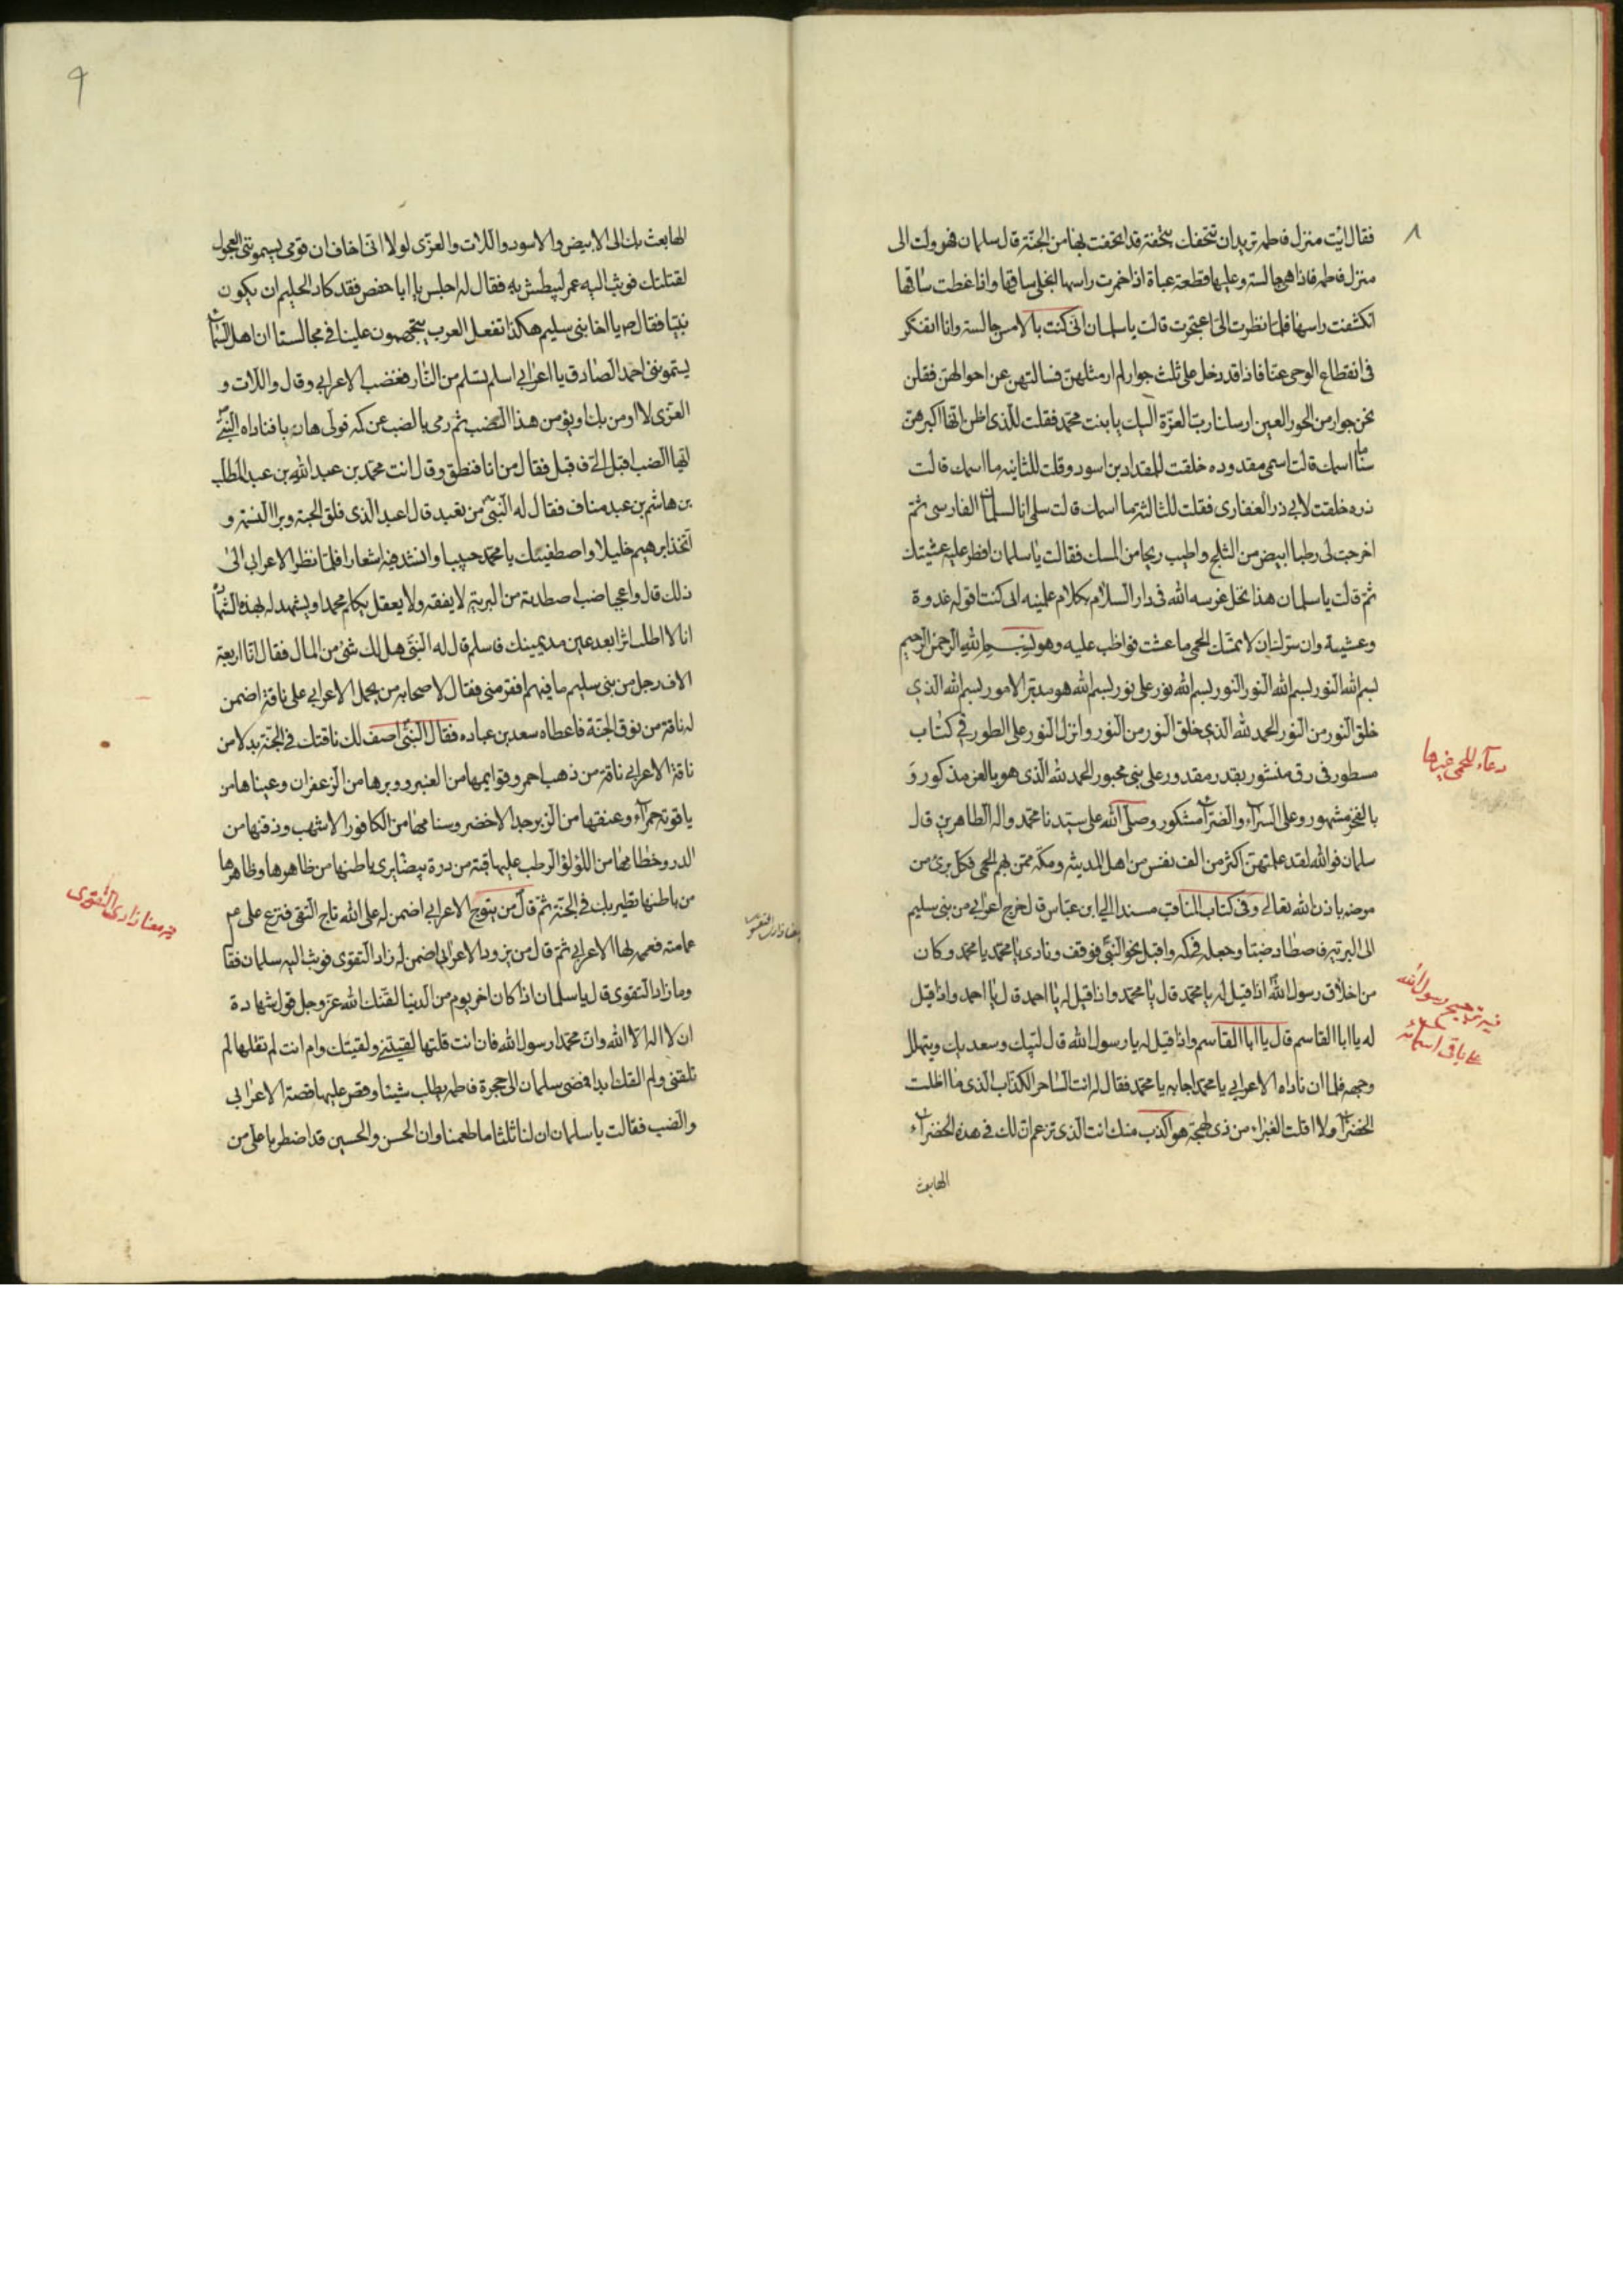 ٨
فقال ائت منزل فاطمه تريدان تتحفك بتحفة قد اتحفت بها من الجنّة قال سلمان فهرولت الى
منزل فاطمه فاذا هي جالسة وعليها قطعة عباة اذا خمرت راسها انجلى ساقها واذا غطت ساقها
انكشفت راسها فلمّا نظرت الىّ اعتجرت قالت يا سلمان انى كنت بالامس جالسة وانا اتفكر
فى انقطاع الوحى عنّا فاذا قد دخل علىّ ثلث جوار لم ار مثلهنّ فسالتهن عن احوالهنّ فقلن
نحن جوار من الحور العين ارسلنا ربّ العزّة اليك يا بنت محمّد فقلت للّذى اظن انّها اكبرهنّ
سنّا ما اسمك قالت اسمى مقدوده خلقت للمقداد بن اسود وقلت للثانيه ما اسمك قالت
ذره خلقت لابي ذر الغفارى فقلت للثالثة ما اسمك قالت سلمى انا لسلمان الفارسى ثمّ
اخرجت لى رطبا ابيض من الثلج واطيب ريحا من المسك فقالت يا سلمان افطر عليه عشيّتك
ثمّ قالت يا سلمان هذا نخل غرسه الله فى دار السلام بكلام علمنيه ابى كنت اقوله غدوة
وعشيه وان سرّك ان لا تمسّك الحمى ما عشت فواظب عليه وهو بسم الله الرحمن الرحيم
بسم الله النّور بسم الله النّور النّور بسم الله نور على نور بسم الله هو مدبّر الامور بسم الله الذي
خلق النّور من النّور الحمد لله الذي خلق النّور من النّور وانزل النّور على الطور في كتاب
مسطور فى رق منشور بقدر مقدور على نبى محبور الحمد لله الذى هو بالعز مذكور و
بالفخر مشهور وعلى السرّاء والضرّاء مشكور وصلّى الله على سيّدنا محمّد واله الطاهرين قال
سلمان فوالله لقد علمتهنّ اكثر من الف نفس من اهل المدينه ومكّه ممّن بهم الحمى فكل برئ من
مرضه باذن الله تعالى وفى كتاب المناقب مسندا الى ابن عبّاس قال خرج اعرابي من بنى سليم
الى البريّه فاصطاد ضبّا وجعله في كمّه واقبل نحو النّبىّ فوقف ونادى يا محمّد يا محمّد وكان
من اخلاق رسول اللّه اذا قيل له يا محمّد قال يا محمّد واذا قيل له يا احمد قال يا احمد واذا قيل
له يا ابا القاسم قال يا ابا القاسم واذا قيل له يا رسول الله قال لبّيك وسعديك ويتهلل
وجهه فلما ان ناداه الاعرابي يا محمّد اجابه يا محمّد فقال له انت السّاحر الكذّاب الذى ما اظلت
الخضراء ولا اقلت الغبراء من ذى لهجة هو اكذب منك انت الّذى تزعم انّ لك فى هذه الخضراء
الها بعث
دعاء للحمى
فيه ترجيح رسول الله
على باقى اسمائه
٩
الها بعث بك الى الابيض والاسود واللات والعزّى لولا انّى اخاف ان قومى يسمّوننى العجول
لقتلتك فوثب اليه عمر ليبطش به فقال له اجلس يا ابا حفص فقد كاد الحليم ان يكون
نبيّا فقال ص يا اخا بنى سليم هكذا تفعل العرب يتجهمون علينا فى مجالسنا ان اهل السّماء
يسمّوننى احمد الصادق يا اعرابى اسلم تسلم من النّار فغضب الاعرابى وقال واللّات و
العزّى لا اومن بك او يؤمن هذا الضب ثم رمى بالضب عن كمّه فولّى هاربا فناداه النّبىّ
ايّها الضب اقبل الىّ فاقبل فقال من انا فنطق وقال انت محمّد بن عبد اللّه بن عبد المطلب
بن هاشم بن عبد مناف فقال له النّبىّ من تعبد قال اعبد الّذى فلق الحبة وبرا النسمة و
اتّخذ ابرهيم خليلا واصطفيك يا محمّد حبيبا وانشد فيه اشعارا فلمّا نظر الاعرابي الى
ذلك قال واعجبا ضب اصطدته من البريّة لا يفقه ولا يعقل يكلم محمدا ويشهد له بهذه الشهادة
انا لا اطلب اثرا بعد عين مد يمينك فاسلم قال له النّبىّ هل لك شئ من المال فقال انا اربعة
الاف رجل من بنى سليم ما فيهم افقر منى فقال لاصحابه من يحمل الاعرابي على ناقة اضمن
له ناقة من نوق الجنّة فاعطاه سعد بن عباده فقال النّبىّ اصف لك ناقتك فى الجنّة بدلا من
ناقة الاعرابي ناقة من ذهب احمر وقوايمها من العنبر ووبرها من الزعفران وعيناها من
ياقوته حمراء وعنقها من الزبرجد الاخضر وسنامها من الكافور الاشهب وذقنها من
الدر وخطامها من اللؤلؤ الرطب عليها قبة من درة بيضا يرى باطنها من ظاهرها وظاهرها
من باطنها تطير بك فى الجنّة ثمّ قال من يتوّج الاعرابي اضمن له على الله تاج التقى فنزع على عم
عمامته فعمم بها الاعرابي ثمّ قال من يزود الاعرابى اضمن له زاد التقوى فوثب اليه سلمان فقال
وما زاد التقوى قال يا سلمان اذا كان اخر يوم من الدنيا لقّنك الله عزّ وجل قول شهادة
ان لا اله الّا الله وانّ محمّدا رسول الله فان انت قلتها لقيتنى ولقيتك وام انت لم تقلها لم
تلقنى ولم القك ابدا فمضى سلمان الى حجرة فاطمه يطلب شيئا وقص عليها قصة الاعرابي
والضب فقالت يا سلمان ان لنا ثلثا ما طعمنا وان الحسن والحسين قد اضطربا علىّ من
فيه معنا زاد التقوى